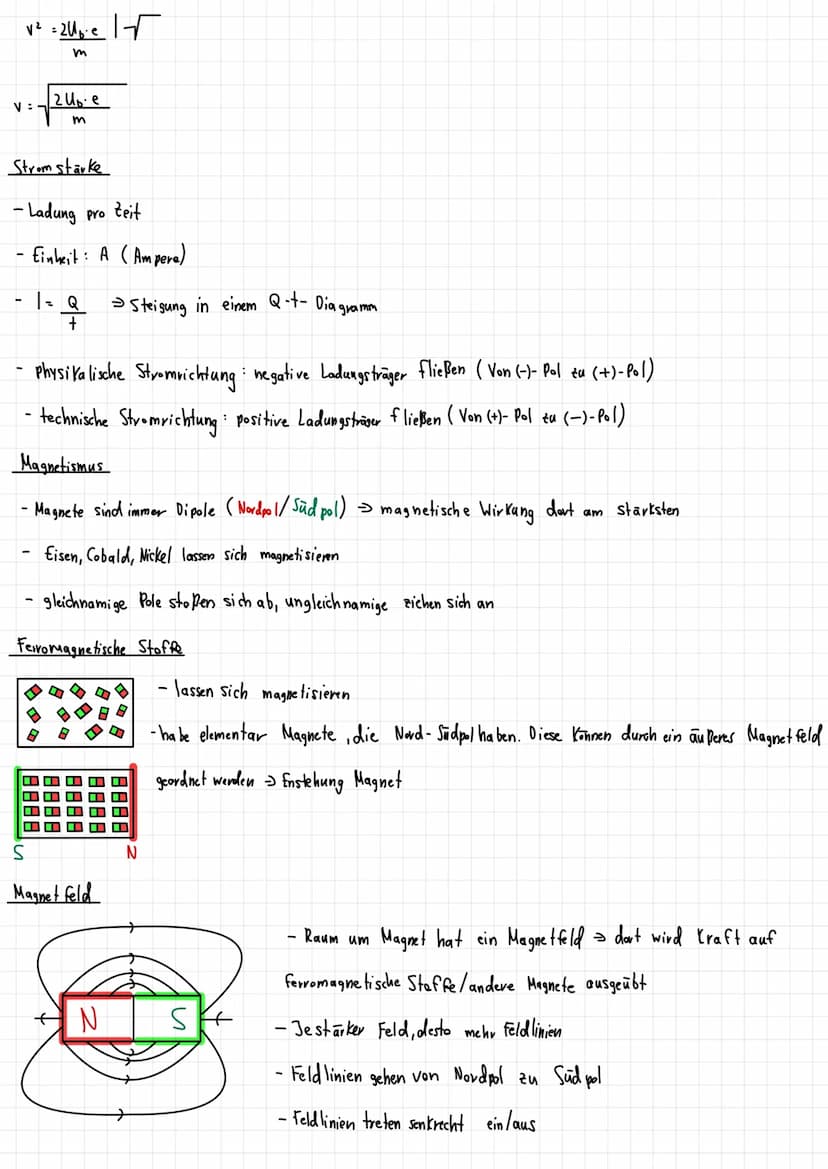 v² = 2U_b·e / m |√
v = √(2U_b·e / m)
Stromstärke
- Ladung pro Zeit
- Einheit: A (Ampere)
- I = Q/t ⇒ Steigung in einem Q-t-Diagramm
- physikalische Stromrichtung: negative Ladungsträger fließen (Von (-)-Pol zu (+)-Pol)
- technische Stromrichtung: positive Ladungsträger fließen (Von (+)-Pol zu (-)-Pol)
Magnetismus
- Magnete sind immer Dipole (Nordpol/Südpol) ⇒ magnetische Wirkung dort am stärksten
- Eisen, Cobald, Nickel lassen sich magnetisieren
- gleichnamige Pole stoßen sich ab, ungleichnamige ziehen sich an
Ferromagnetische Stoffe
- lassen sich magnetisieren
- habe elementar Magnete, die Nord-Südpol haben. Diese können durch ein äußeres Magnetfeld
geordnet werden ⇒ Enstehung Magnet
S N
Magnetfeld
- Raum um Magnet hat ein Magnetfeld ⇒ dort wird Kraft auf
ferromagnetische Stoffe/andere Magnete ausgeübt
N S
- Je stärker Feld, desto mehr Feldlinien
- Feldlinien gehen von Nordpol zu Südpol
- Feldlinien treten senkrecht ein/aus